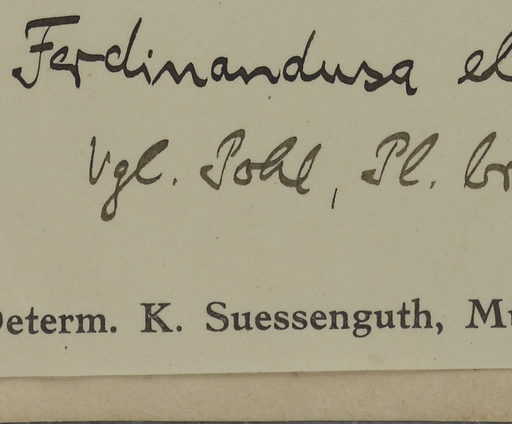 Ferdinandusa el
Vgl. Pohl, Pl. br
Determ. K. Suessenguth, Mu